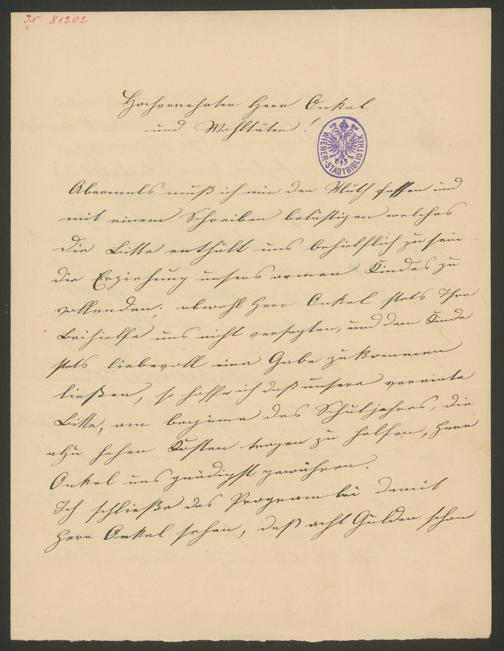 IN 81202
Hochverehrter Herr Onkel
und Wohltäter!
WIENER-STADTBIBLIOTHEK
Abermals muß ich mir den Muth fassen und
mit einem Schreiben belästigen welches
die Bitte enthält uns behülflich zu sein
die Erziehung unsers armen Kindes zu
vollenden; obwohl Herr Onkel stets Ihre
Beihielfe uns nicht versagten, und dem Kinde
stets liebevoll eine Gabe zukommen
ließen, so hoffe ich daß unsere vereinte
Bitte, am beginne des Schuljahres, die
allzu hohen Kosten tragen zu helfen, Herr
Onkel uns gnädigst gewähren.
Ich schließe das Program bei damit
Herr Onkel sehen, daß acht Gulden schon